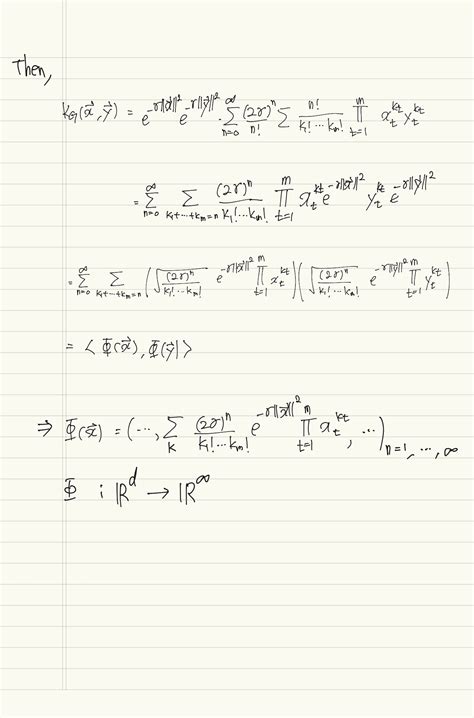 Then,
K_G(x⃗, y⃗) = e^{-r||x⃗||²} e^{-r||y⃗||²} · Σ_{n=0}^{∞} (2r)^n / n! Σ n! / (k₁! ⋯ k_m!) Π_{t=1}^{m} x_t^{k_t} y_t^{k_t}
= Σ_{n=0}^{∞} Σ_{k₁+⋯+k_m=n} (2r)^n / (k₁! ⋯ k_m!) Π_{t=1}^{m} x_t^{k_t} e^{-r||x⃗||²} y_t^{k_t} e^{-r||y⃗||²}
= Σ_{n=0}^{∞} Σ_{k₁+⋯+k_m=n} ( √((2r)^n / (k₁! ⋯ k_m!)) e^{-r||x⃗||²} Π_{t=1}^{m} x_t^{k_t} ) ( √((2r)^n / (k₁! ⋯ k_m!)) e^{-r||y⃗||²} Π_{t=1}^{m} y_t^{k_t} )
= < Φ(x⃗), Φ(y⃗) >
⇒ Φ(x⃗) = ( ⋯, Σ_K (2r)^n / (k₁! ⋯ k_m!) e^{-r||x⃗||²} Π_{t=1}^{m} x_t^{k_t}, ⋯ )_{n=1, ⋯, ∞}
Φ : ℝ^d → ℝ^∞